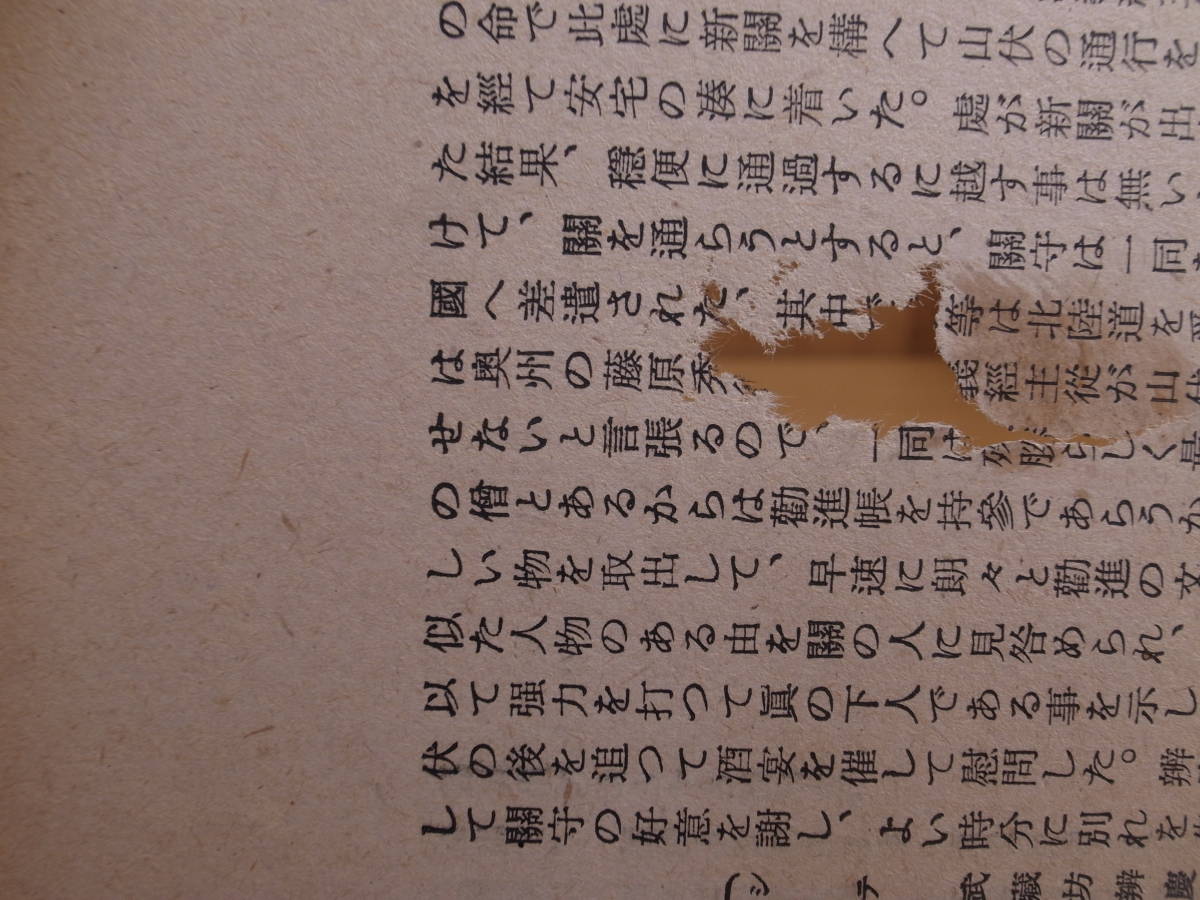 の命で此處に新關を構へて山伏の通行を
を經て安宅の湊に着いた。處が新關が出
た結果、穩便に通過するに越す事は無い
けて、關を通らうとすると、關守は一同
國へ差遣された、其中で 等は北陸道を
は奥州の藤原秀 義經主從が山伏
せないと言張るので、一同は らしく最
の僧とあるからは勸進帳を持參であらうか
しい物を取出して、早速に朗々と勸進の文
似た人物のある由を關の人に見咎められ、
以て强力を打つて眞の下人である事を示し
伏の後を追つて酒宴を催して慰問した。辨
して關守の好意を謝し、よい時分に別れを
(シテ 武藏坊辨慶